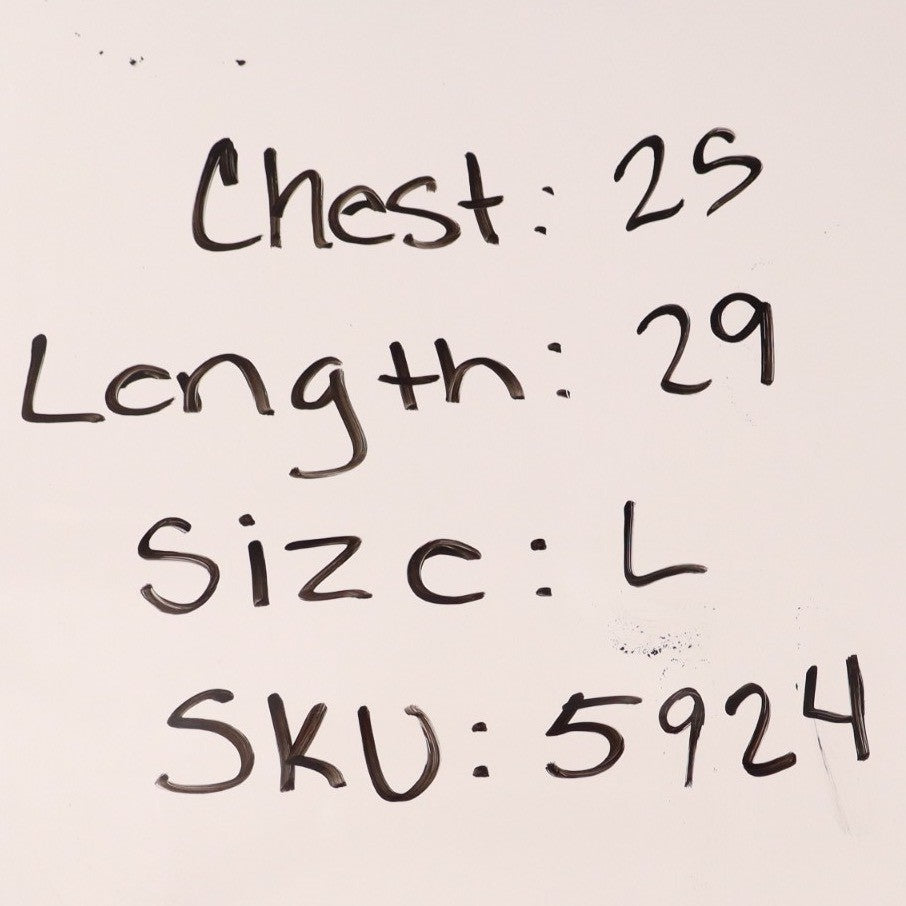 Chest: 25
Length: 29
Size: L
SKU: 5924